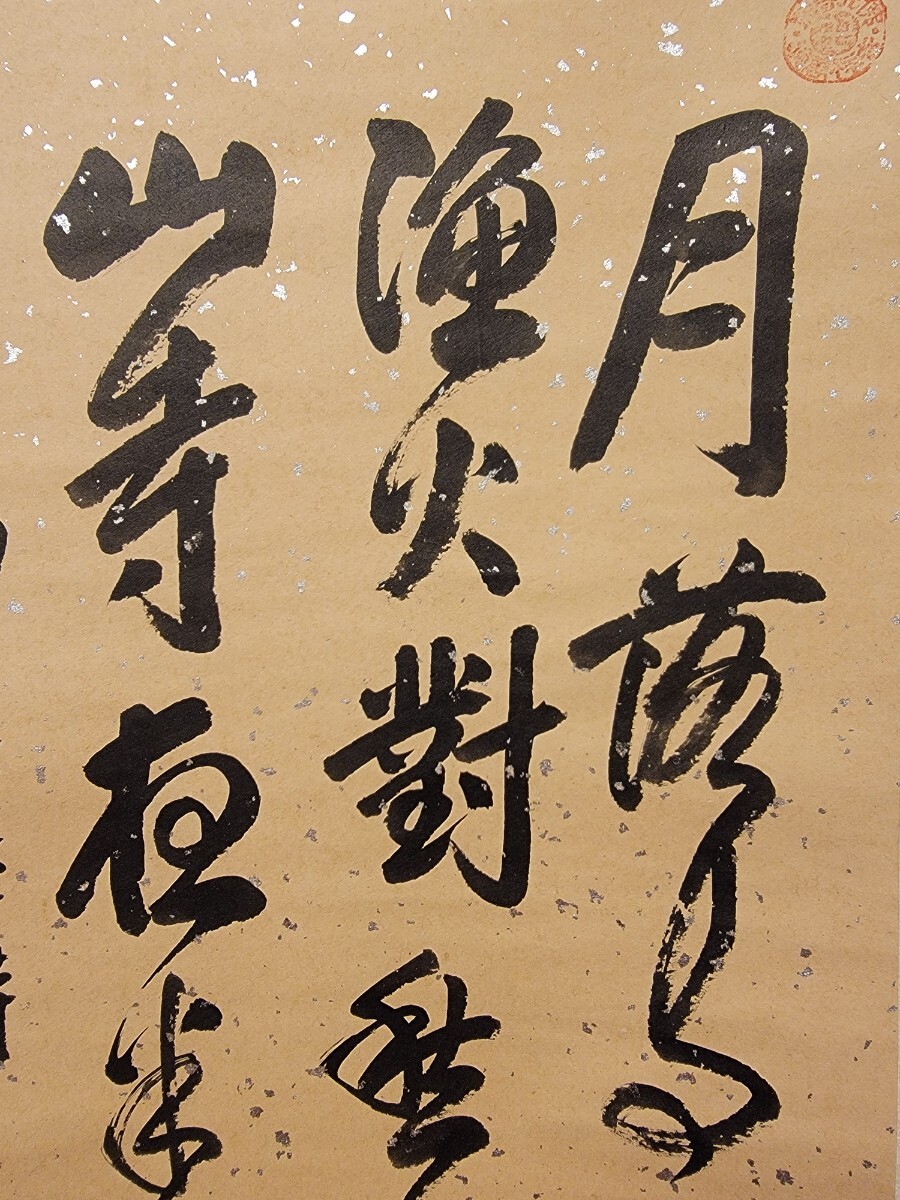 月落烏
漁火對愁
山寺夜半